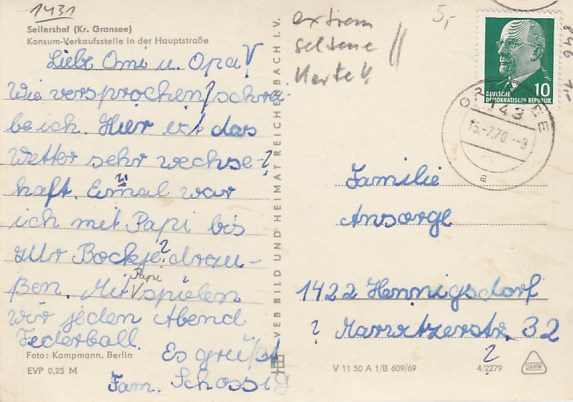 1431
Seilershof (Kr. Gransee)
Konsum-Verkaufsstelle in der Hauptstraße
Liebe Omi u. Opa!
Wie versprochen, schrei-
be ich. Hier ist das
Wetter sehr wechsel-
haft. Einmal war
ich mit Papi bis
zur Bockje drau-
ßen. Mit Papi spielen
wir jeden Abend
Federball.
Es grüßt
Fam. Schossig
Foto: Kampmann, Berlin
EVP 0,25 M
VEB BILD UND HEIMAT REICHENBACH I. V.
extrem
seltene
Karte!!
5,-
846
1,-
10
DEUTSCHE
DEMOKRATISCHE REPUBLIK
GRANSEE
143
15.-7.70.-9
a
Familie
Ansorge
1422 Hennigsdorf
? Marwitzerstr. 32
?
V 11 50 A 1/B 609/69
4/2279